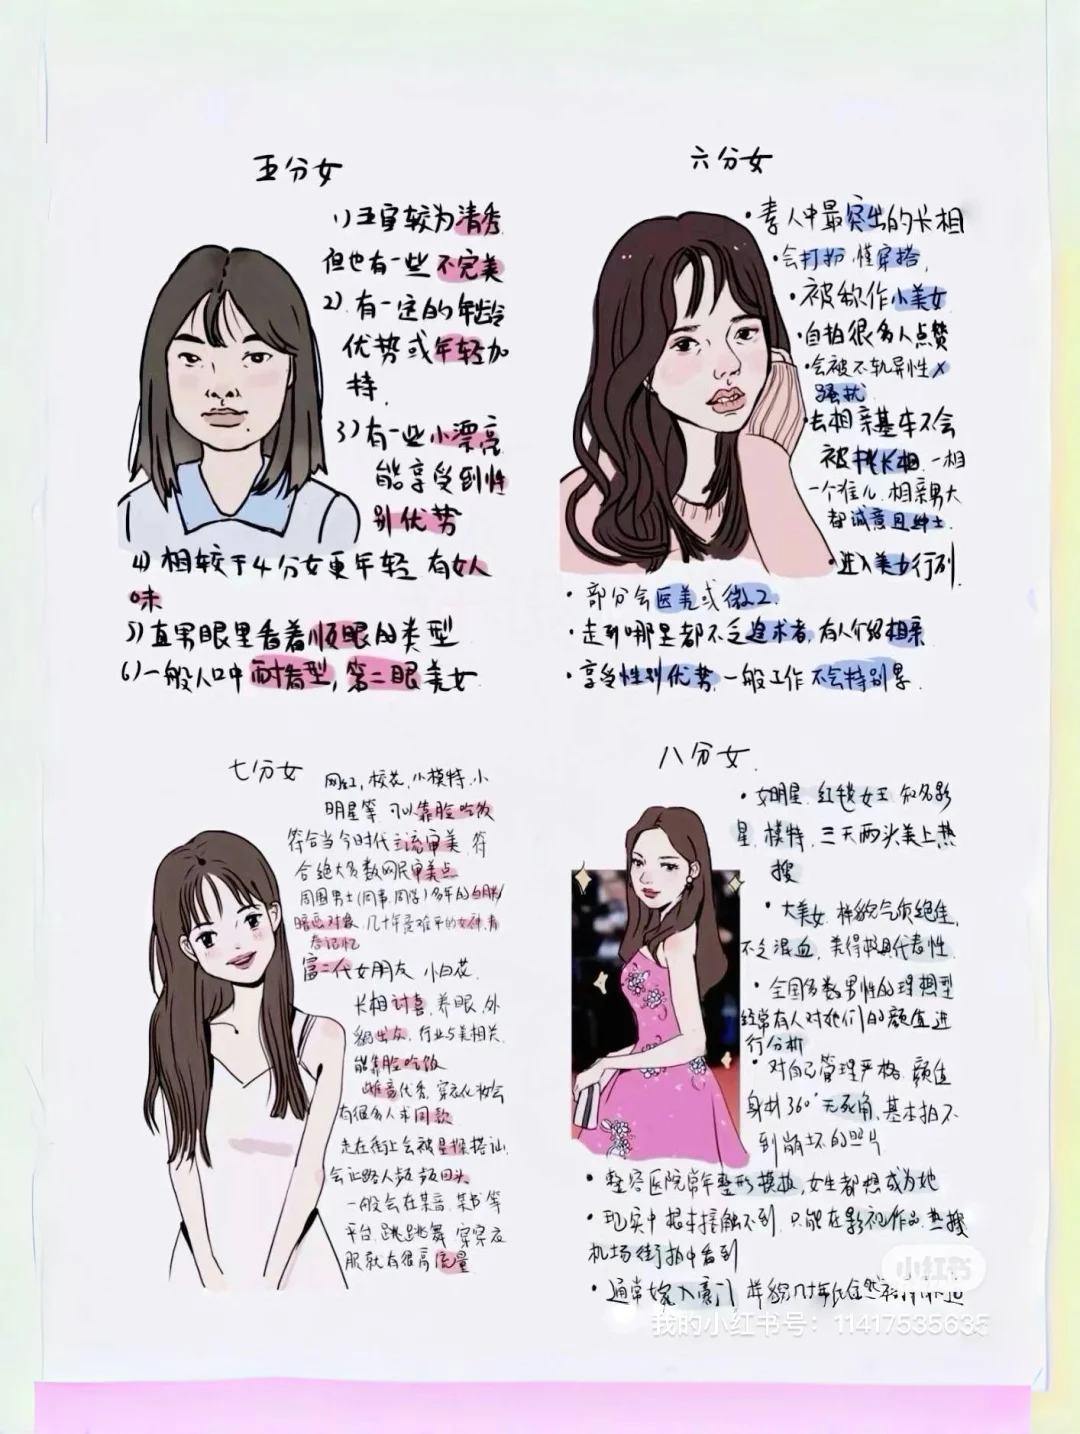 五分女
1)五官较为清秀
但也有一些不完美
2)有一定的年龄
优势或年轻加
持.
3)有一些小漂亮
能享受到性
别优势
4)相较于4分女更年轻 有女人
味
5)直男眼里看着顺眼的类型
6)一般人口中耐看型,第二眼美女
六分女
·素人中最突出的长相
·会打扮,懂穿搭,
·被称作小美女
·自拍很多人点赞
·会被不轨异性x
骚扰
·去相亲基本不会
被挑长相,一相
一个准儿,相亲男大
都诚意且绅士.
·进入美女行列.
·部分会医美或微工.
·走到哪里都不乏追求者,有人介绍相亲
·享受性别优势,一般工作不会特别累.
七分女
网红,校花,小模特,小
明星等,可以靠脸吃饭
符合当今时代主流审美,符
合绝大多数网民审美点
周围男士(同事,同学)多年的白月光/
暗恋对象,几十年意难平的女神,青
春记忆
富二代女朋友 小白花.
长相讨喜,养眼,外
貌出众,行业与美相关,
能靠脸吃饭
雌竞优秀,穿衣化妆会
有很多人求同款
走在街上会被星探搭讪,
会让路人频频回头.
一般会在某音,某书等
平台,跳跳舞,穿穿衣
服就有很高流量
八分女.
·女明星,红毯女王,知名影
星,模特,三天两头美上热
搜
·大美女,样貌气质绝佳,
不乏混血,美得极具代表性
·全国多数男性的理想型
经常有人对她们的颜值进
行分析
·对自己管理严格,颜值
身材360°无死角,基本拍不
到崩坏的照片
·整容医院常年整形模板,女生都想成为她
·现实中根本接触不到,只能在影视作品,热搜
机场街拍中看到
·通常嫁入豪门,样貌几十年比自然
小红书
我的小红书号:11417535635